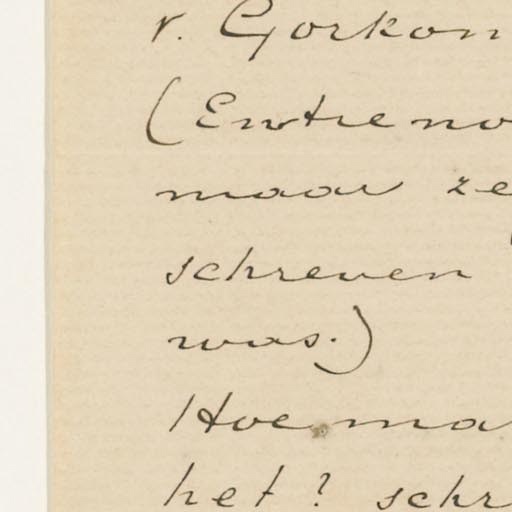 v. Gorkom
(Entre no
maar ze
schreven
was.)
Hoe ma
het? schr